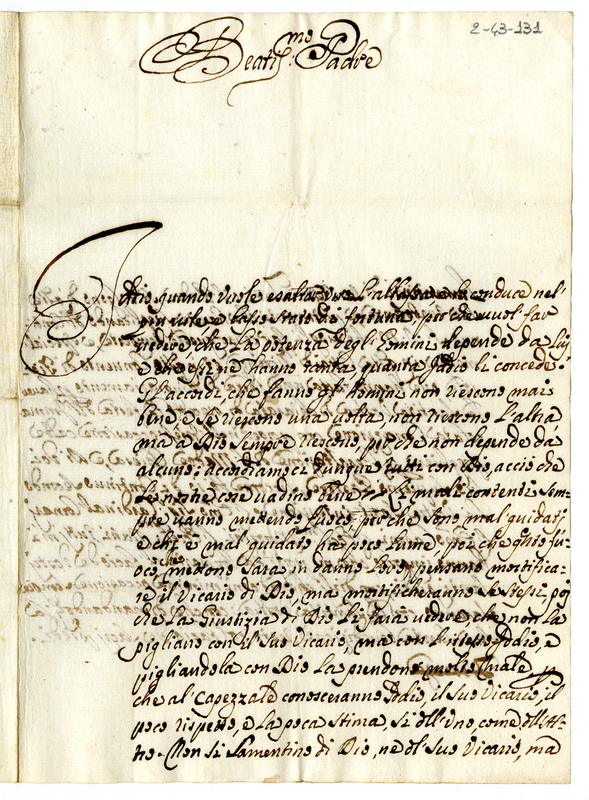 2-43-131
Beatis.mo Padre
Iddio quando vuole esaltar l'altrui conduce nel
più vile e basso stato di fortuna, poiche vuol far
vedere che la potenza degl'Uomini depende da Lui
e che essi ne hanno tanta quanta Iddio li concede.
Gl'accordi, che fanno gl'homini non riescono mai
bene, e se riescono una volta, non riescono l'altra
ma a Dio sempre riescono, poiche non depende da
alcuno; accordiamoci dunque tutti con Dio, acciò che
le nostre cose vadino bene. Li mali contenti sem-
pre vanno mettendo fuoco, poiche sono mal guidati,
e chi è mal guidato ha poco lume; poiche qsto fu-
oco, che mettono sarà in danno loro, pensano mortifica-
re il Vicario di Dio, ma mortificheranno se stessi, poi
che la Giustizia di Dio li farà vedere, che non la
pigliano con il suo Vicario, ma con l'istesso Iddio, e
pigliandola con Dio la prendono molto male, p
che al Capezzale conosceranno Iddio, il suo Vicario, il
poco rispetto, e la poca stima, sì dell'Uno, come dell'Al-
tro. Non si lamentino di Dio, ne del suo Vicario, mà